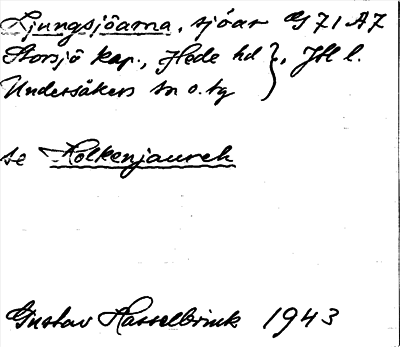 Ljungsjöarna, sjöar G 71 A7
Storsjö kap., Hede hd }, Jtl l.
Undersåkers sn o. tg
se Holkenjaureh
Gustav Hasselbrink 1943